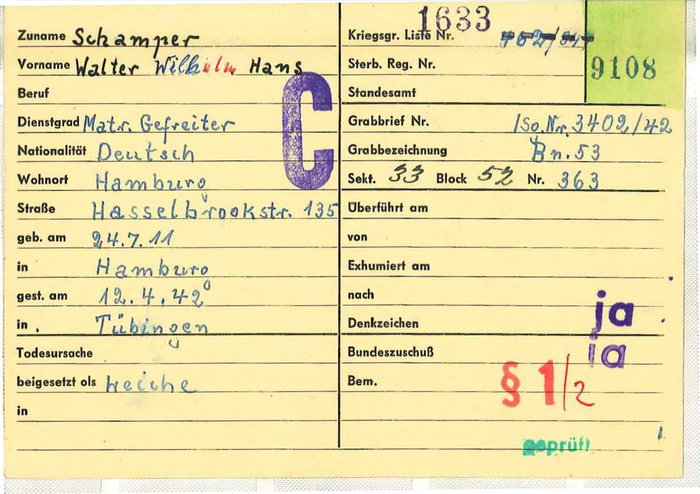 1633
Zuname Schamper
Vorname Walter Wilhelm Hans
Beruf
Dienstgrad Matr. Gefreiter
Nationalität Deutsch
Wohnort Hamburg
Straße Hasselbrookstr. 135
geb. am 24.7.11
in Hamburg
gest. am 12.4.42
in Tübingen
Todesursache
beigesetzt als Leiche
in
C
Kriegsgr. Liste Nr.
Sterb. Reg. Nr.
9108
Standesamt
Grabbrief Nr. Iso.Nr. 3402/42
Grabbezeichnung Bn. 53
Sekt. 33 Block 52 Nr. 363
Überführt am
von
Exhumiert am
nach
Denkzeichen ja
Bundeszuschuß ja
Bem. § 1/2
geprüft